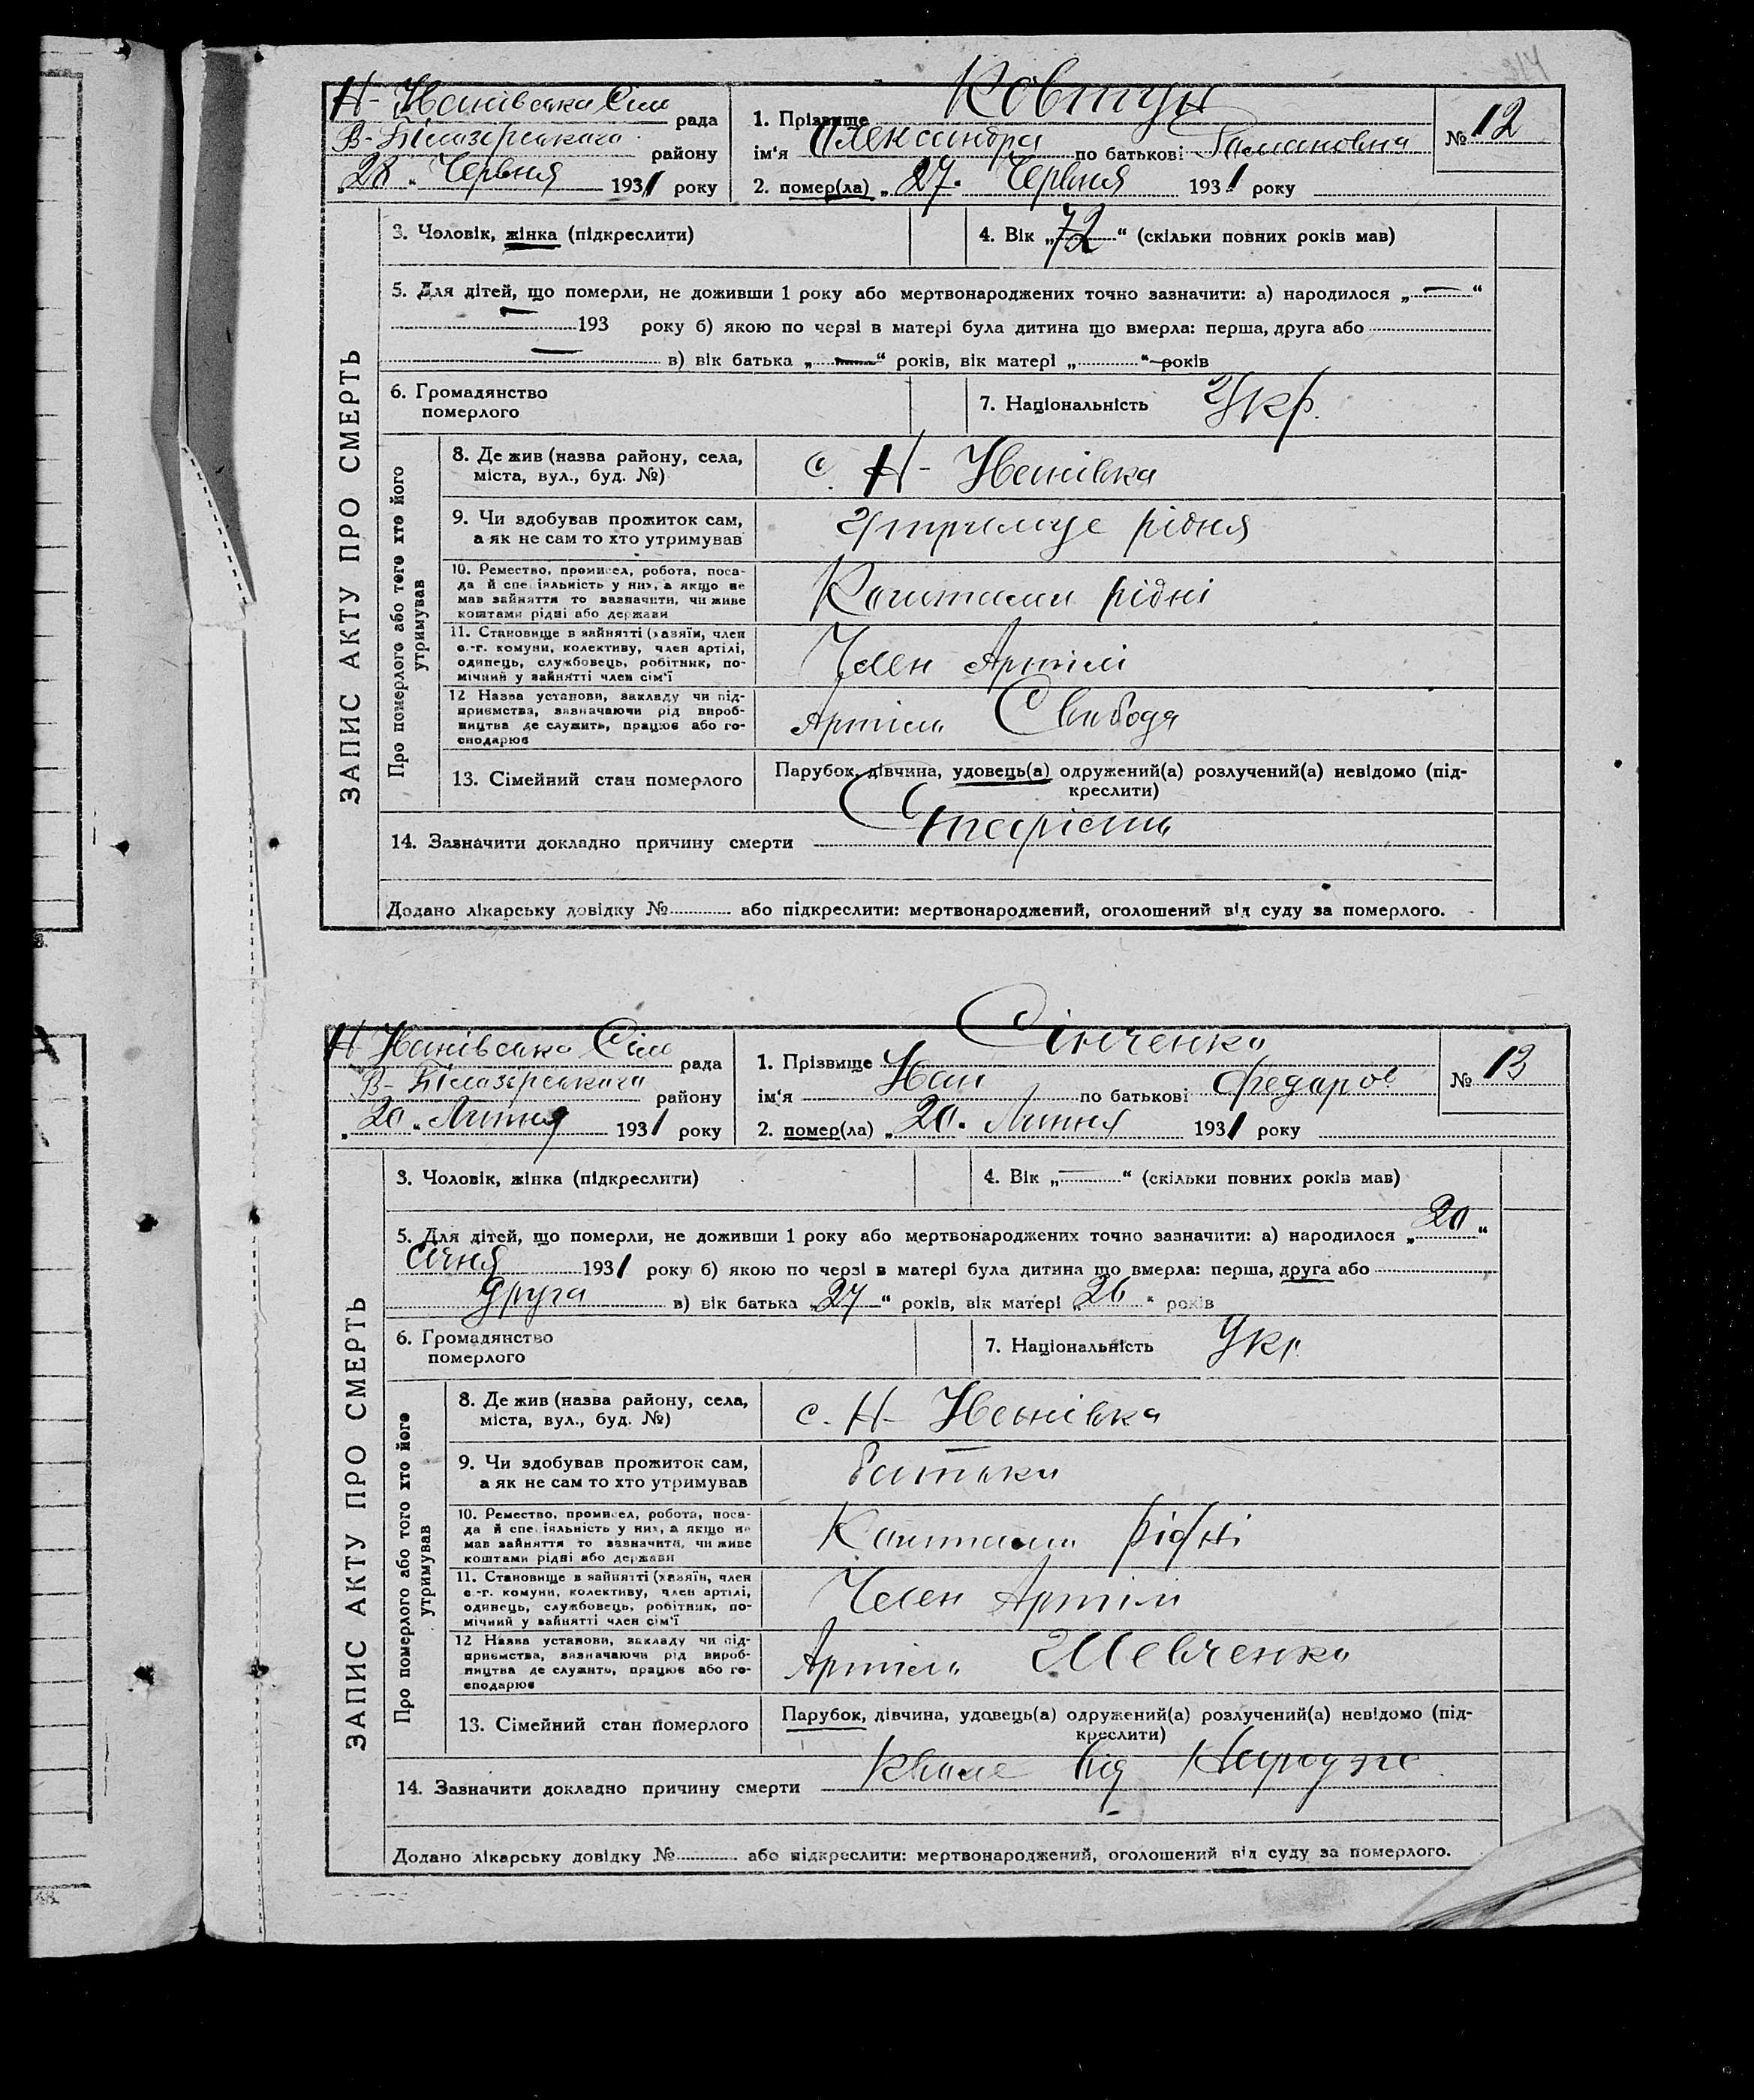 214
Н-Іванівська Сіль рада
В-Білозерського району
„28“ Червня 1931 року
1. Прізвище Ковтун
ім'я Олександра по батькові Романовна
2. помер(ла) „27“ Червня 1931 року
№ 12
ЗАПИС АКТУ ПРО СМЕРТЬ
3. Чоловік, жінка (підкреслити)
4. Вік „72“ (скільки повних років мав)
5. Для дітей, що померли, не доживши 1 року або мертвонароджених точно зазначити: а) народилося „—“
— 193 року б) якою по черзі в матері була дитина що вмерла: перша, друга або
— в) вік батька „—“ років, вік матері „ “ років
6. Громадянство
померлого
7. Національність Укр.
Про померлого або того хто його
утримував
8. Де жив (назва району, села,
міста, вул., буд. №)
с. Н-Іванівка
9. Чи здобував прожиток сам,
а як не сам то хто утримував
Утримує рідня
10. Ремество, промисел, робота, поса-
да й спеціяльність у них, а якщо не
мав зайняття то зазначити, чи живе
коштами рідні або держави
Коштами рідні
11. Становище в зайнятті (хазяїн, член
с.-г. комуни, колективу, член артілі,
одинець, службовець, робітник, по-
мічний у зайнятті член сім'ї
Член Артілі
12 Назва установи, закладу чи під-
приємства, зазначаючи рід вироб-
ництва де служить, працює або го-
сподарює
Артіль Свобода
13. Сімейний стан померлого
Парубок, дівчина, удовець(а) одружений(а) розлучений(а) невідомо (під-
креслити)
14. Зазначити докладно причину смерти Старість
Додано лікарську довідку № або підкреслити: мертвонароджений, оголошений від суду за померлого.
Н-Іванівська Сіль рада
В-Білозерського району
„20“ Липня 1931 року
1. Прізвище Сінченко
ім'я Іван по батькові Федоров
2. помер(ла) „20“ Липня 1931 року
№ 13
ЗАПИС АКТУ ПРО СМЕРТЬ
3. Чоловік, жінка (підкреслити)
4. Вік „—“ (скільки повних років мав)
5. Для дітей, що померли, не доживши 1 року або мертвонароджених точно зазначити: а) народилося „20“
Січня 1931 року б) якою по черзі в матері була дитина що вмерла: перша, друга або
друга в) вік батька „27“ років, вік матері „26“ років
6. Громадянство
померлого
7. Національність Укр.
Про померлого або того хто його
утримував
8. Де жив (назва району, села,
міста, вул., буд. №)
с. Н-Іванівка
9. Чи здобував прожиток сам,
а як не сам то хто утримував
Батьки
10. Ремество, промисел, робота, поса-
да й спеціяльність у них, а якщо не
мав зайняття то зазначити, чи живе
коштами рідні або держави
Коштами рідні
11. Становище в зайнятті (хазяїн, член
с.-г. комуни, колективу, член артілі,
одинець, службовець, робітник, по-
мічний у зайнятті член сім'ї
Член Артілі
12 Назва установи, закладу чи під-
приємства, зазначаючи рід вироб-
ництва де служить, працює або го-
сподарює
Артіль Шевченко
13. Сімейний стан померлого
Парубок, дівчина, удовець(а) одружений(а) розлучений(а) невідомо (під-
креслити)
14. Зазначити докладно причину смерти Кволе від
Додано лікарську довідку № або підкреслити: мертвонароджений, оголошений від суду за померлого.